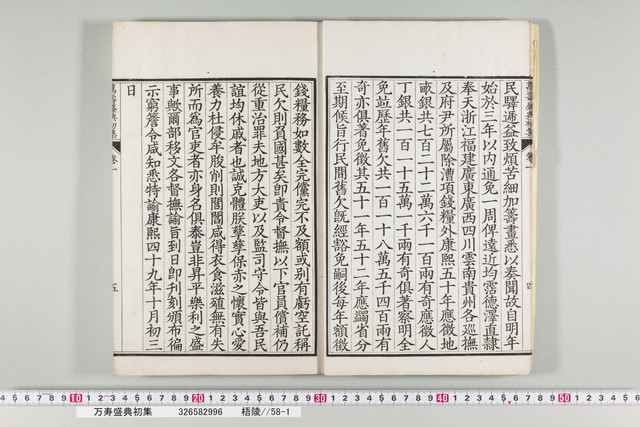 民驛遞益致煩苦細加籌畫悉以奏聞故自明年
始於三年以內通免一周俾遠近均霑德澤直隸
奉天浙江福建廣東廣西四川雲南貴州各巡撫
及府尹所屬除漕項錢糧外康熙五十年應徵地
畝銀共七百二十二萬六千一百兩有奇應徵人
丁銀共一百一十五萬一千兩有奇俱著察明全
免竝歷年舊欠共一百一十八萬五千四百兩有
奇亦俱著免徵其五十一年五十二年應蠲省分
至期候旨行民間舊欠旣經豁免嗣後每年額徵
四
錢糧務如數全完儻完不及額或別有虧空託稱
民欠則負國甚矣卽責令督撫以下官員償補仍
從重治罪夫地方大吏以及監司守令皆與吾民
誼均休戚者也誠克體朕孳孳保赤之懷實心愛
養力杜侵牟朘削則閭閻咸得衣食滋殖無有失
所而爲官吏者亦身名俱泰豈非昇平樂利之盛
事歟爾部移文各督撫諭旨到日卽刋刻頒布徧
示窮簷令咸知悉特諭康熙四十九年十月初三
日
萬壽盛典初集 卷一
五
10 20 30 40 50 60
万寿盛典初集 326582996 梧陵//58-1